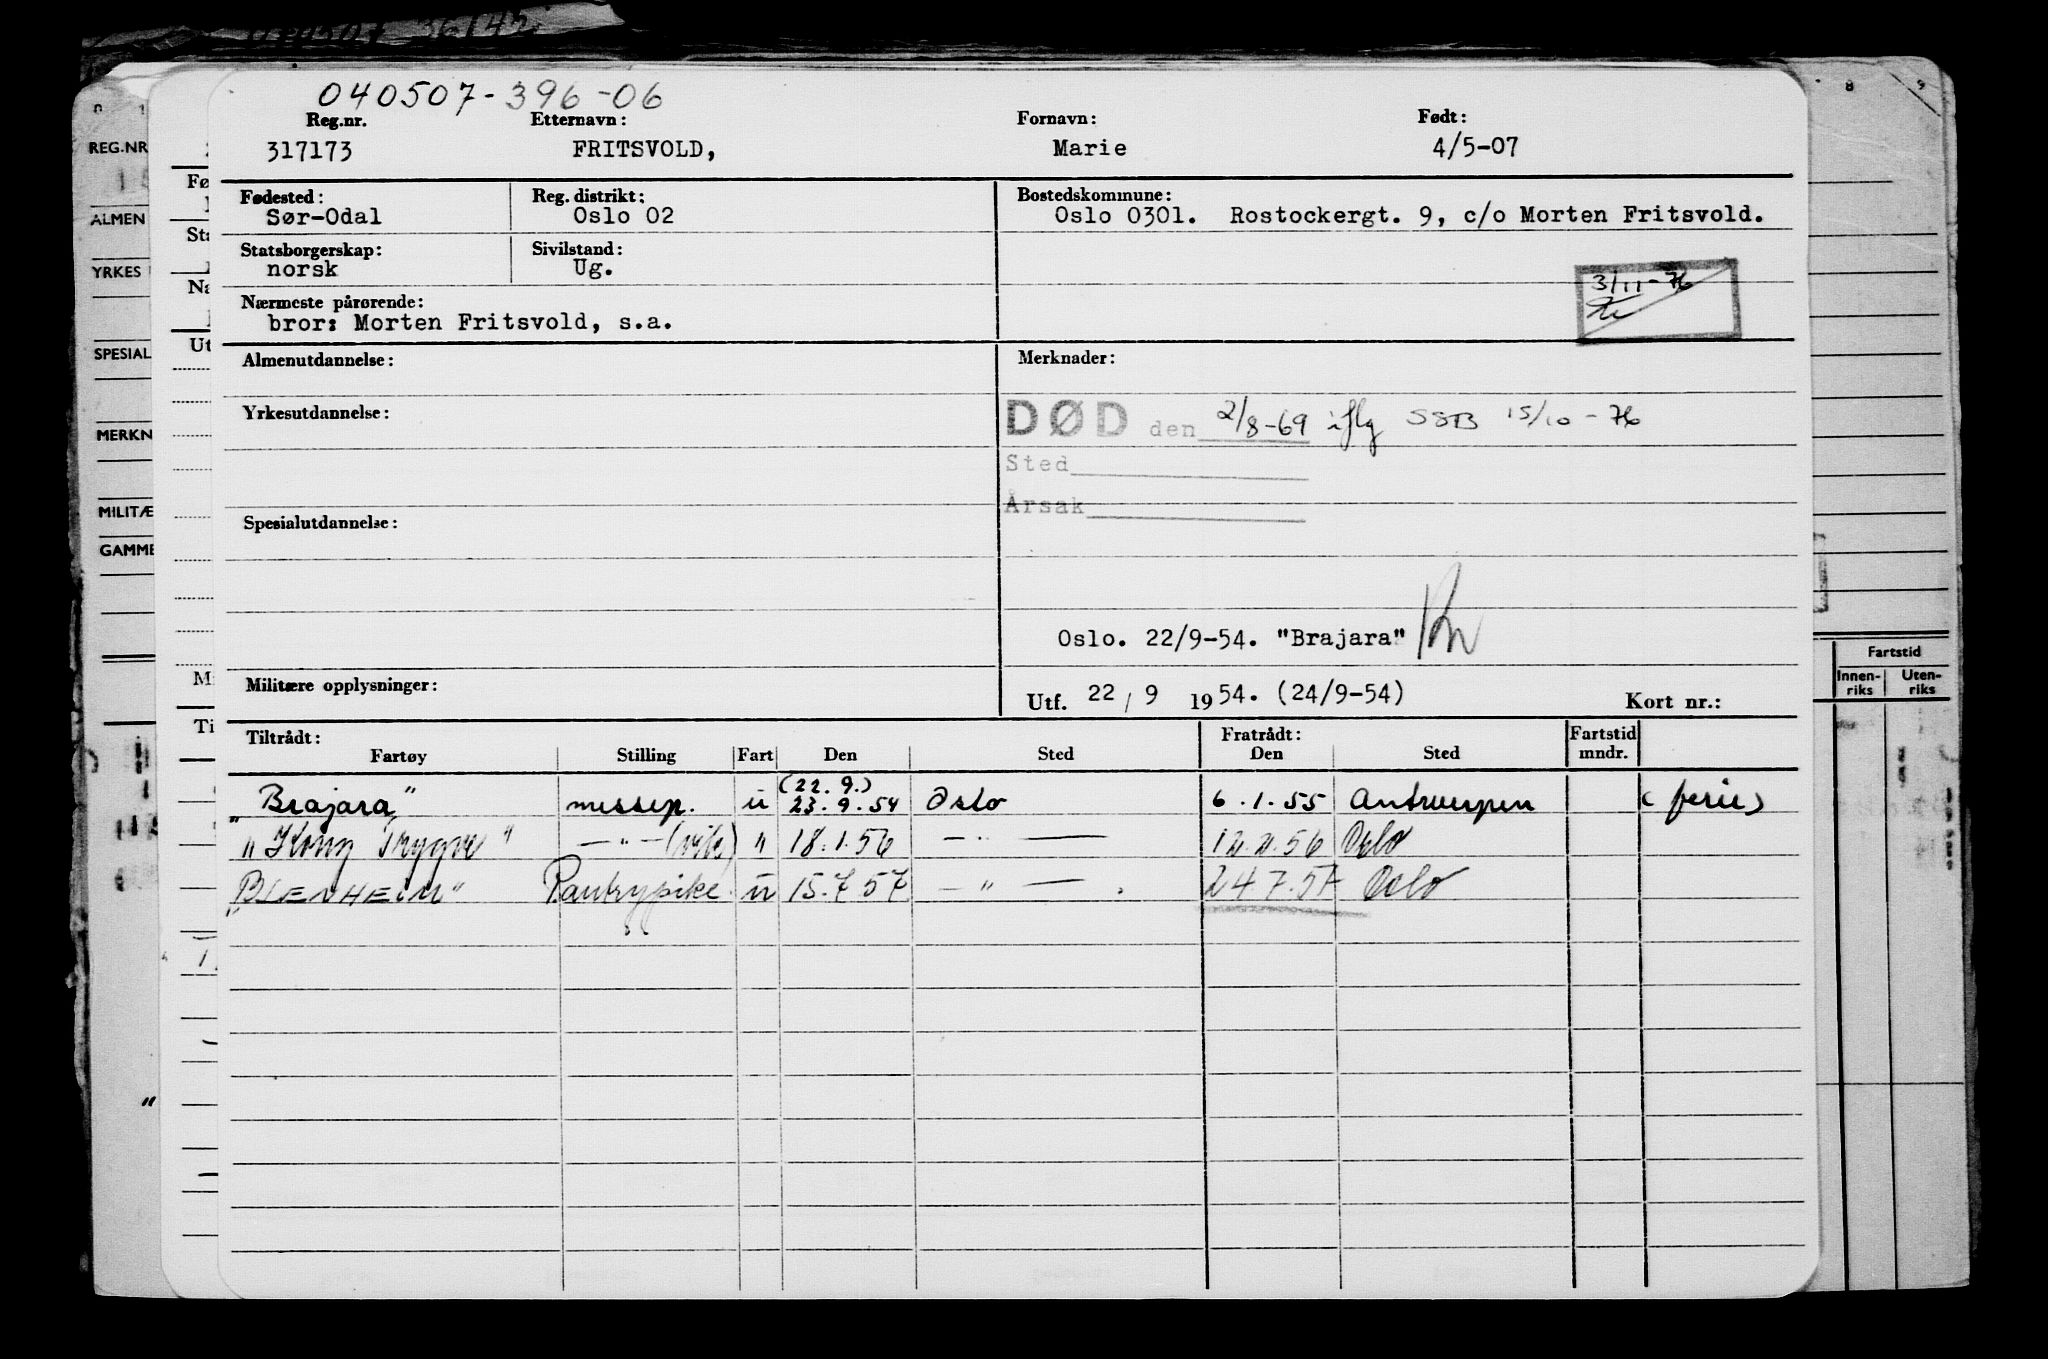 040507-396-06
Reg.nr. Etternavn: Fornavn: Født:
317173 FRITSVOLD, Marie 4/5-07
Fødested: Reg. distrikt: Bostedskommune:
Sør-Odal Oslo 02 Oslo 0301. Rostockergt. 9, c/o Morten Fritsvold.
Statsborgerskap: Sivilstand:
norsk Ug.
3/11-76
Nærmeste pårørende:
bror: Morten Fritsvold, s.a.
Almenutdannelse: Merknader:
Yrkesutdannelse: DØD den 2/8-69 iflg SSB 15/10-76
Sted
Årsak
Spesialutdannelse:
Oslo. 22/9-54. "Brajara"
Militære opplysninger: Utf. 22/9 1954. (24/9-54) Kort nr.:
Tiltrådt: Fratrådt: Fartstid
Fartøy Stilling Fart Den Sted Den Sted mndr.
(22.9.)
"Brajara" messep. u 23.9.54 Oslo 6.1.55 Antwerpen (ferie)
"Kong Trygve" —"— (vik) " 18.1.56 —"— 12.2.56 Oslo
"BLENHEIM" Pantrypike u 15.7.57 —"— 24.7.57 Oslo
REG.NR
ALMEN
YRKES
SPESIAL
MERKN
MILITÆ
GAMME
Fø
Sta
Na
Ut
M
Ti
8 9
Fartstid
Innen-riks Uten-riks